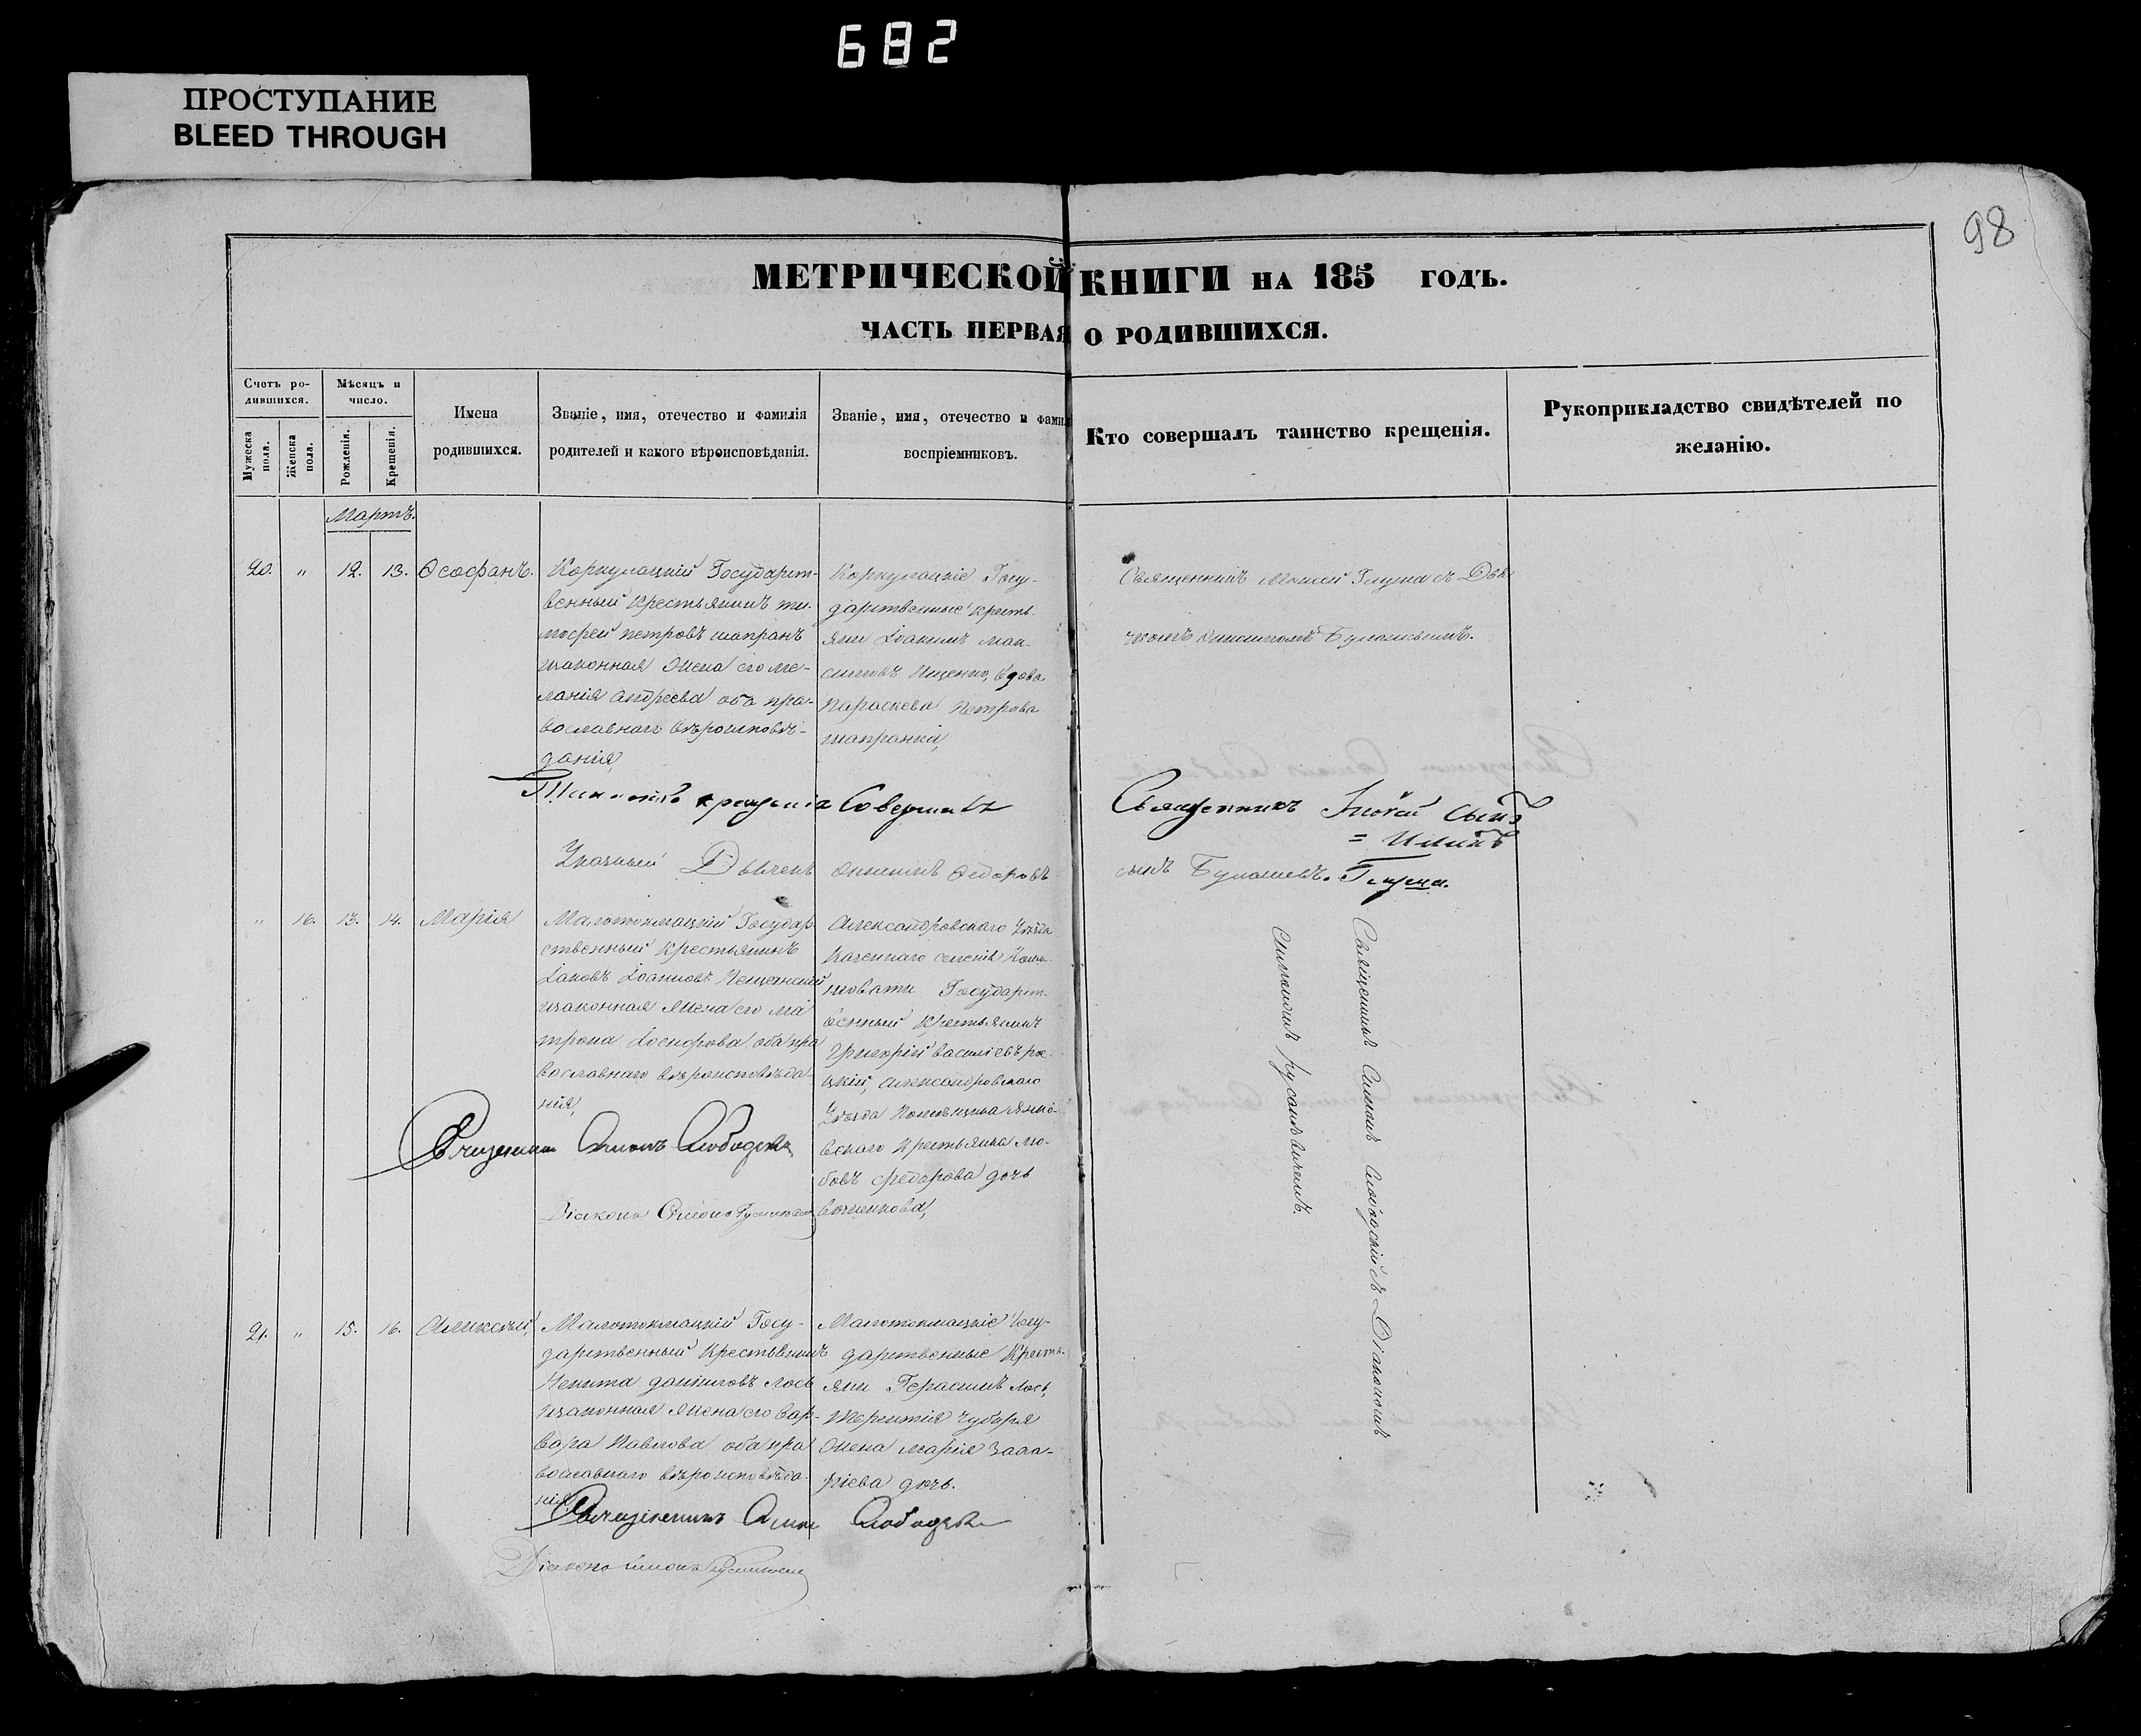 682
ПРОСТУПАНИЕ
BLEED THROUGH
98
МЕТРИЧЕСКОЙ КНИГИ НА 185 ГОДЪ.
ЧАСТЬ ПЕРВАЯ О РОДИВШИХСЯ.
Счетъ ро-
дившихся.
Мужеска пола.
Женска пола.
Мѣсяцъ и
число.
Рожденія.
Крещенія.
Имена
родившихся.
Званіе, имя, отечество и фамилія
родителей и какого вѣроисповѣданія.
Званіе, имя, отечество и фамил
воспріемниковъ.
Кто совершалъ таинство крещенія.
Рукоприкладство свидѣтелей по
желанію.
Мартъ.
20.
"
12.
13.
Ѳеофанъ.
Коркулацкій Государст-
венный крестьянинъ ти-
мофей петровъ шапранъ
изаконная жена его ме-
ланія андреева оба пра-
вославнаго вѣроисповѣ-
данія,
Коркулацкіе Госу-
дарственные кресть-
яни Іоакимъ мак-
симовъ Ищенко, вдова
параскева Петрова
шапранка,
Священникъ Моисей Глущ съ Дья
Таинство крещенія Совершилъ
Священникъ сынъ
Указный Дьячекъ Ѳедоровъ
сынъ
"
16.
13.
14.
Марія
Малотокмацкій Государ-
ственный Крестьянинъ
Іаковъ Іоанновъ
изаконная жена его ма
трона оба пра
вославнаго вѣроисповѣда-
нія,
Александровскаго уѣзда
селенія
Государст-
венный Крестьянинъ
григорій василіевъ
Александровскаго
Уѣзда
Крестьянка лю-
бовь федорова дочь
Священникъ Симонъ Слободскій
Діаконъ Симонъ
Священникъ Симонъ Слободскій съ Діакономъ
21.
"
15.
16.
Алексѣй,
Малотокмацкій Госу-
дарственный Крестьянинъ
Никита даниловъ Лось
изаконная жена его вар-
вара Павлова оба пра
вославнаго вѣроисповѣда-
нія
Малотокмацкіе Госу-
дарственные Кресть-
яни Герасимъ Лось,
Терентія чубаря
жена марія Заха-
ріева дочь.
Священникъ Симонъ Слободскій
Діаконъ Симонъ